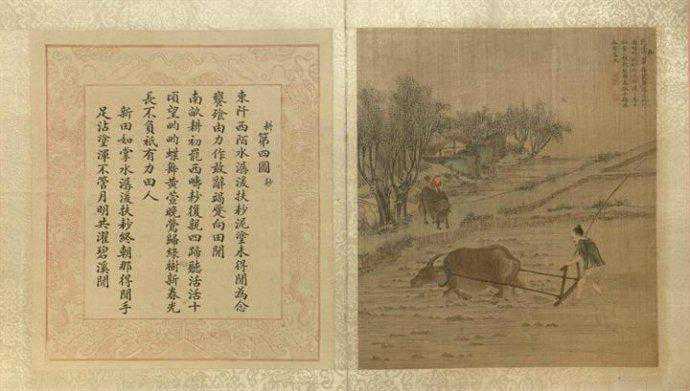 耕 第四圖 耖
東阡西陌水潺湲扶耖泥塗未得閒為念
饔飧由力作敢辭竭蹶向田間
南畝耕初罷西疇耖復親四蹄聽活活十
頃望畇畇蝶舞黃萱晚鶯歸綠樹新春光
長不負祇有力田人
新田如掌水潺湲扶耖終朝那得閒手
足沾塗渾不管月明共濯碧溪間